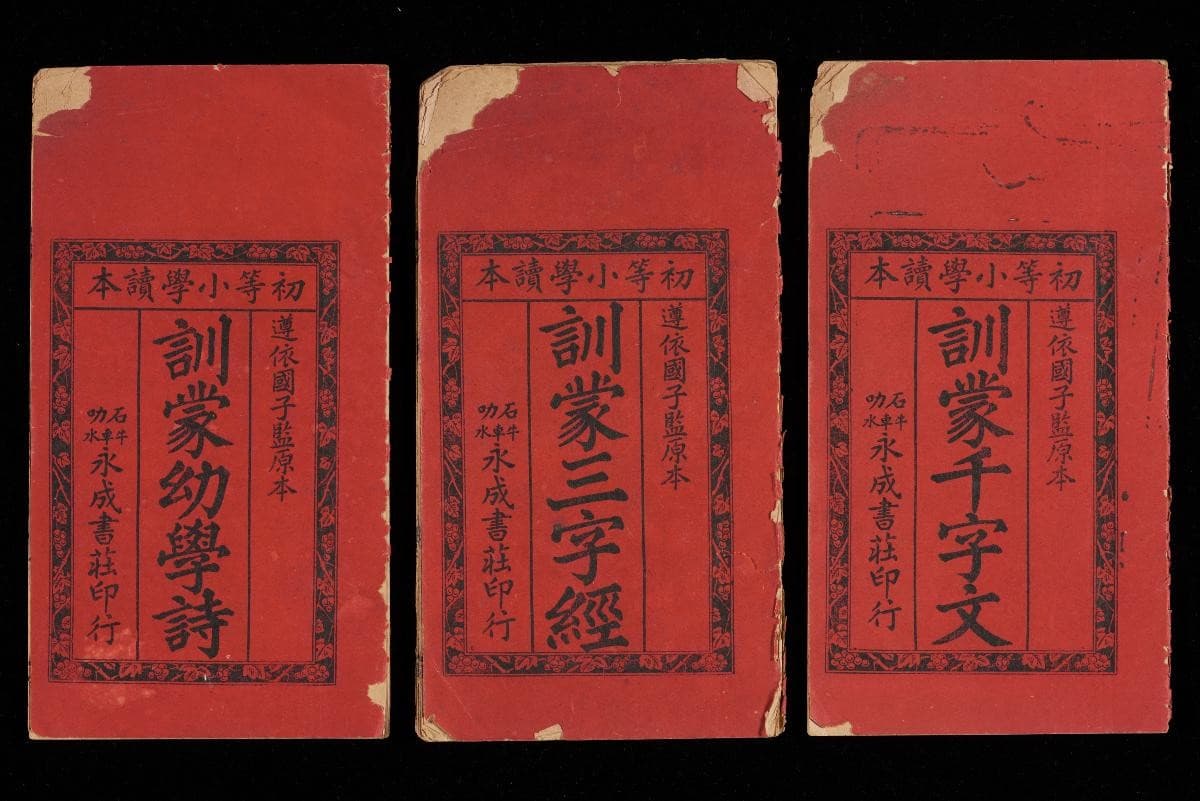 初等小學讀本
遵依國子監原本
訓蒙幼學詩
石叻
牛車水
永成書莊印行
初等小學讀本
遵依國子監原本
訓蒙三字經
石叻
牛車水
永成書莊印行
初等小學讀本
遵依國子監原本
訓蒙千字文
石叻
牛車水
永成書莊印行